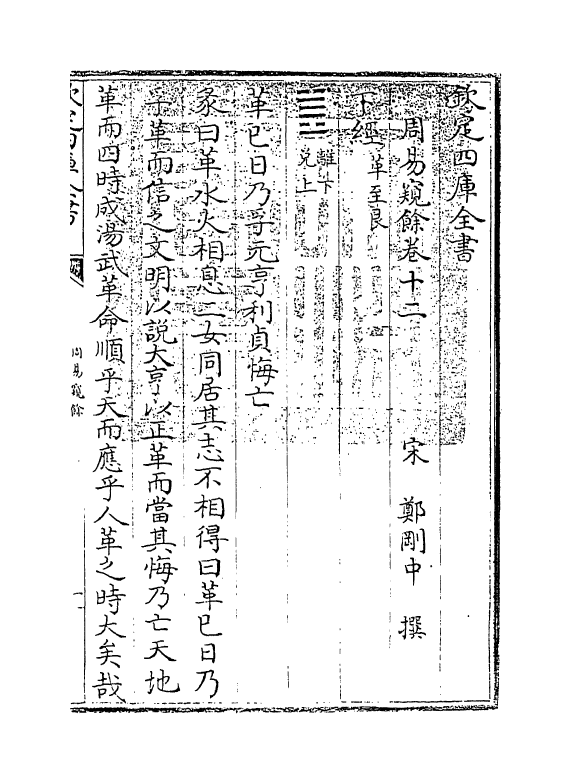 欽定四庫全書
周易窺餘卷十二　宋　鄭剛中　撰
下經革至艮
離下
兌上
革已日乃孚元亨利貞悔亡
彖曰革水火相息二女同居其志不相得曰革已日乃
孚革而信之文明以說大亨以正革而當其悔乃亡天地
革而四時成湯武革命順乎天而應乎人革之時大矣哉
周易窺餘